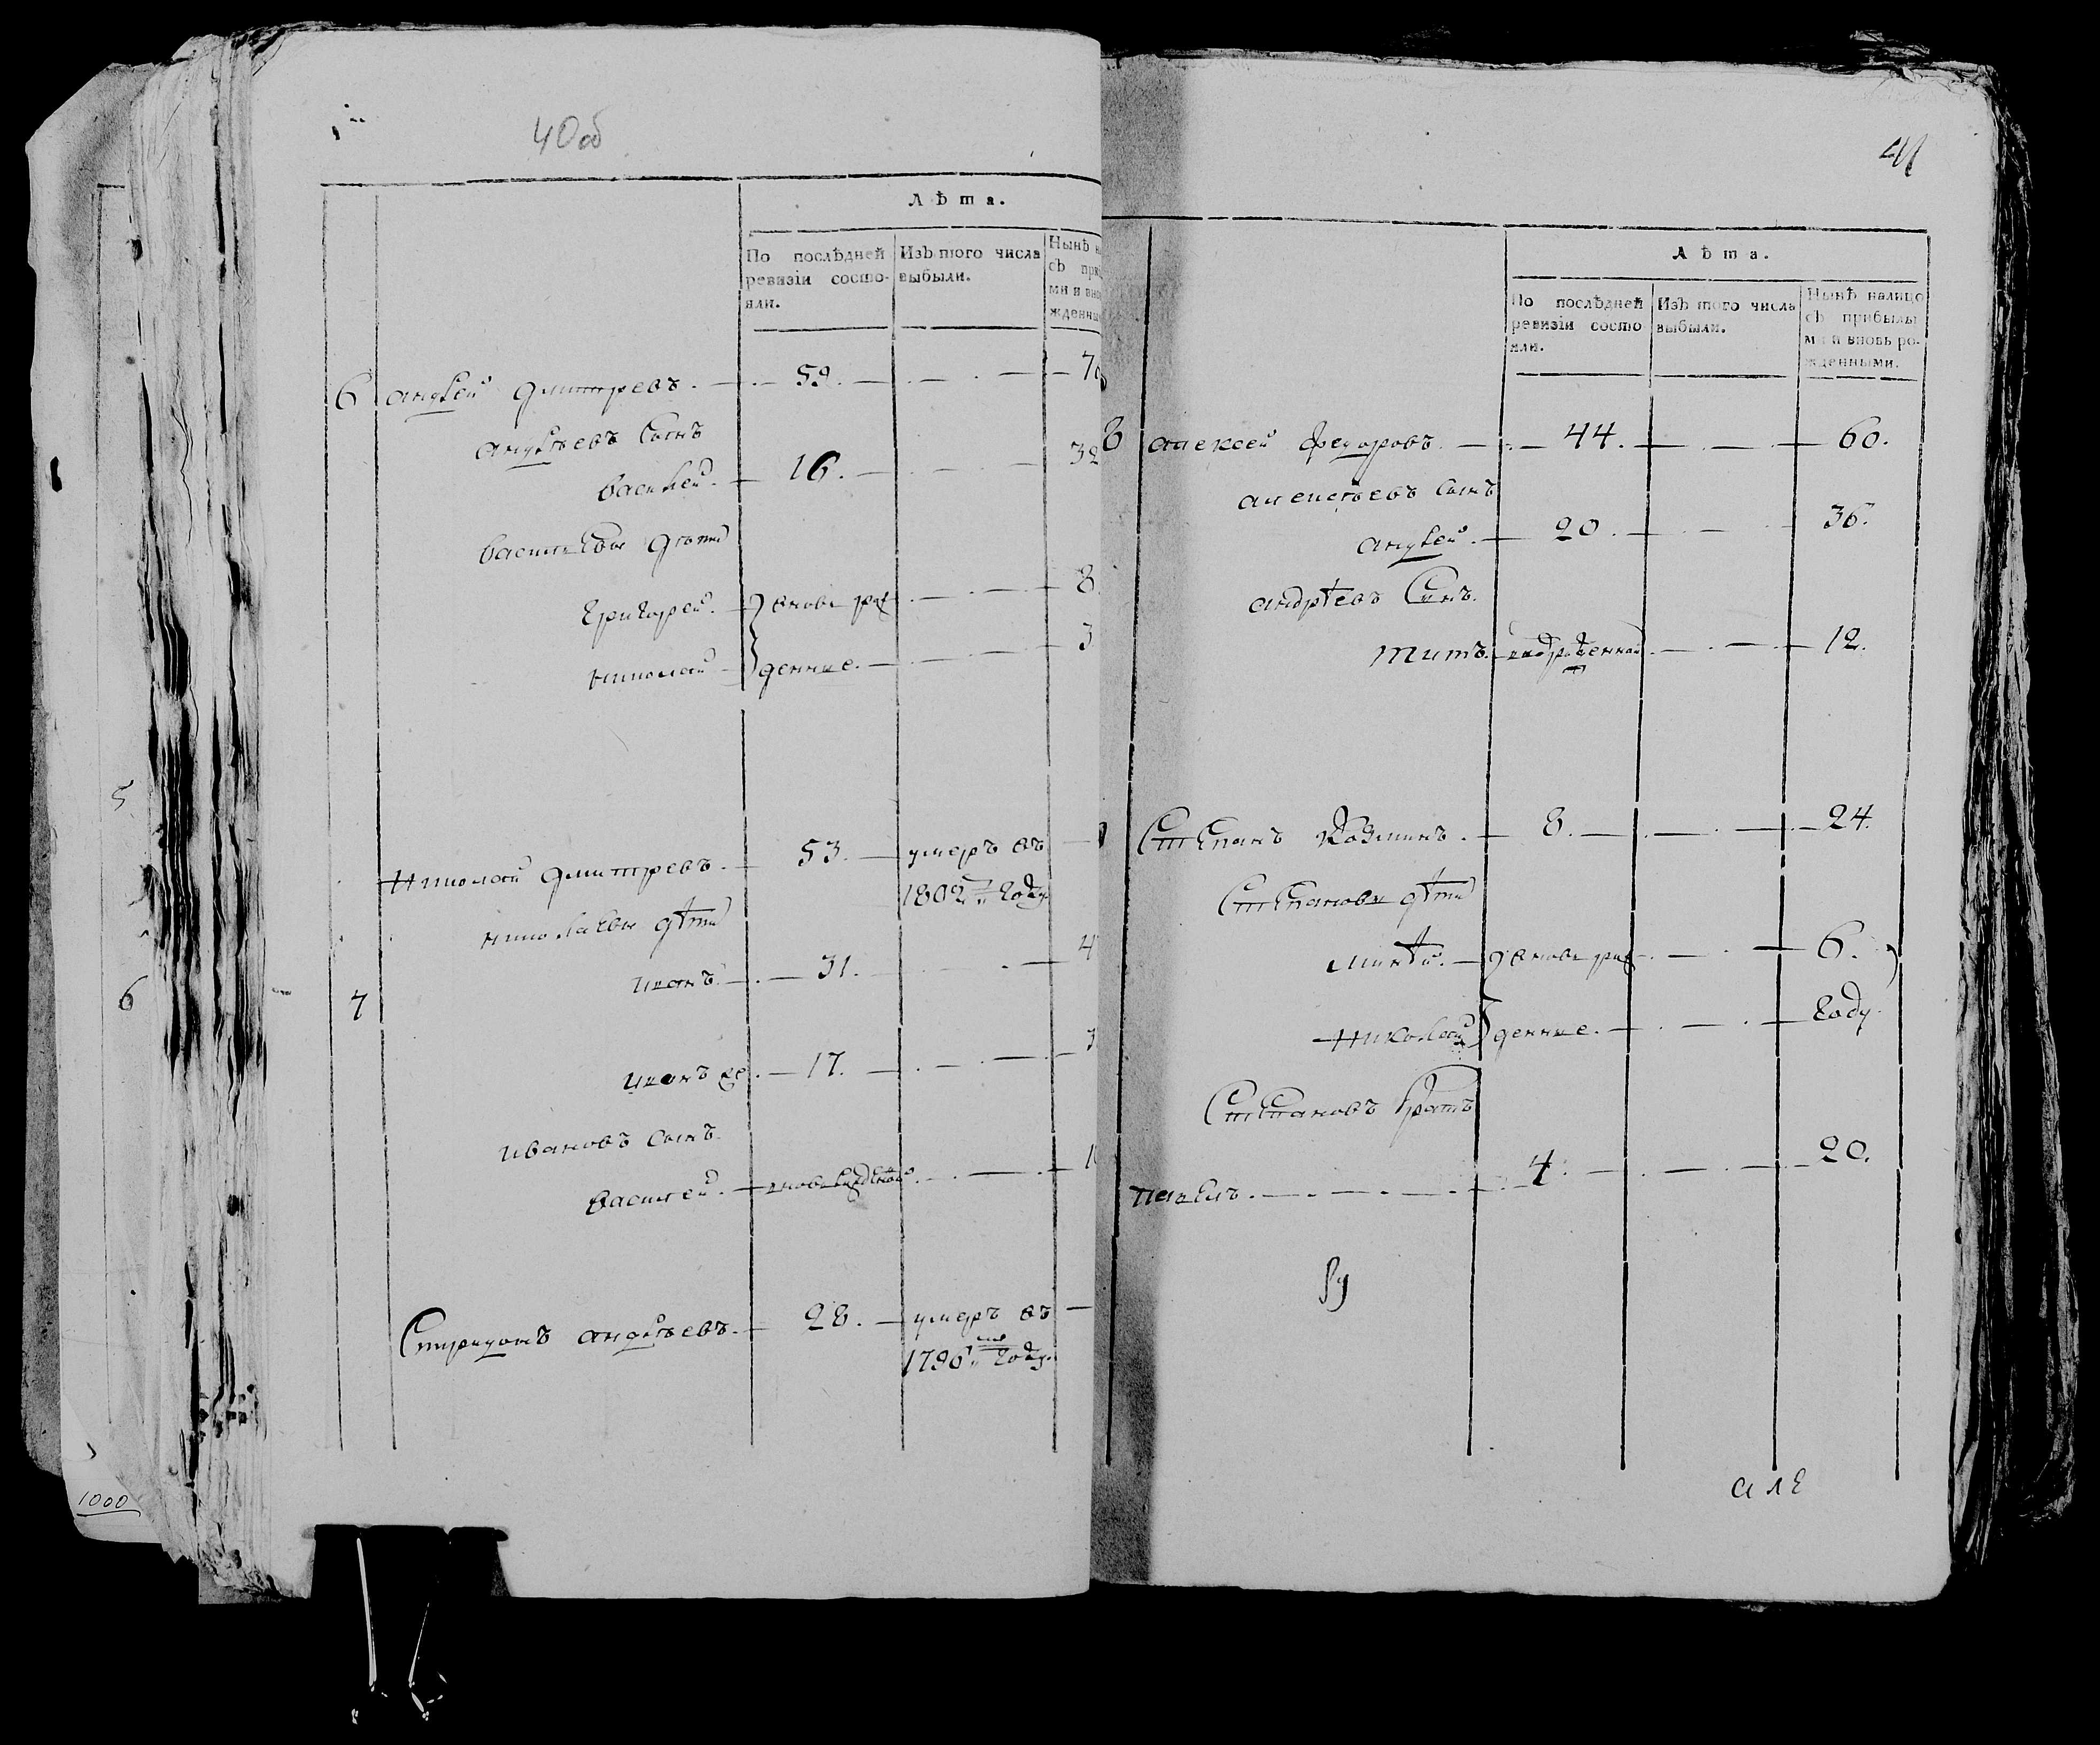 40об
Лѣта.
По послѣдней ревизіи состояли.
Изъ того числа выбыли.
Нынѣ н
съ при
ми и вно
жденны
6 Андрей Дмитревъ. 59. 7
Андрѣевъ Сынъ
Василей. 16. 32
Васильевы дѣти
Григорей. вновь рож 8
Николай денные. 3
Николай Дмитревъ. 53. умеръ въ
1802м году
Николаевы дѣти
7 Иванъ. 31. 4
Иванъ же. 17. 3
Ивановъ Сынъ
Василей. вновь рожденной 1
Спиридонъ Андрѣевъ. 28. умеръ въ
1796м году.
5
6
1000
41
Лѣта.
По послѣдней ревизіи состояли.
Изъ того числа выбыли.
Нынѣ налицо съ прибылыми и вновь рожденными.
8 Алексей Федоровъ. 44. 60.
Алексѣевъ Сынъ
Андрей. 20. 36.
Андрѣевъ Сынъ.
Титъ. 12.
Степанъ Козминъ. 8. 24.
Степановы дѣти
вновь рож 6.
Николай денные. году.
Степановъ братъ
Павелъ. 4. 20.
але